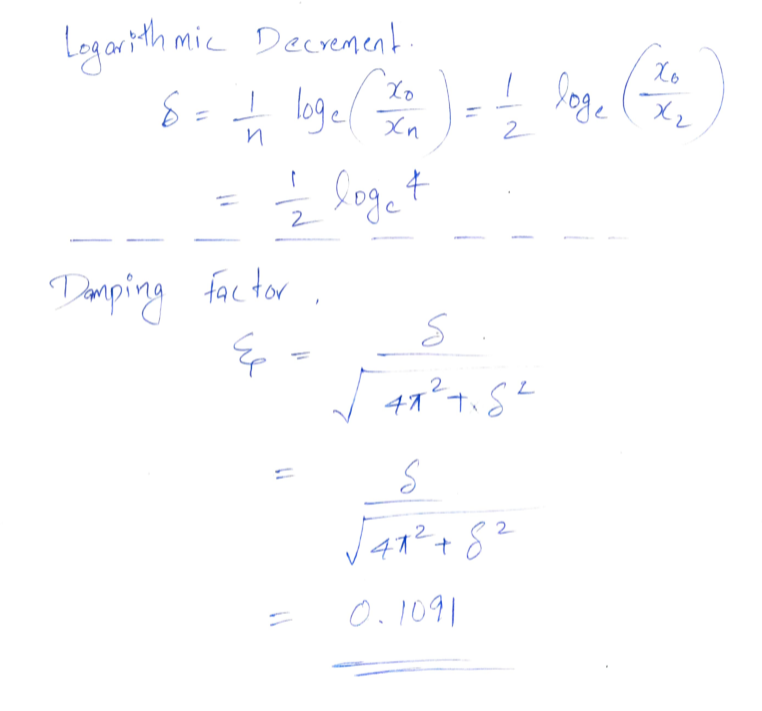 Logarithmic Decrement.
δ = 1/n logₑ(x₀/xₙ) = 1/2 logₑ(x₀/x₂)
= 1/2 logₑ 4
Damping factor,
ξ = δ/√(4π² + δ²)
= δ/√(4π² + δ²)
= 0.1091